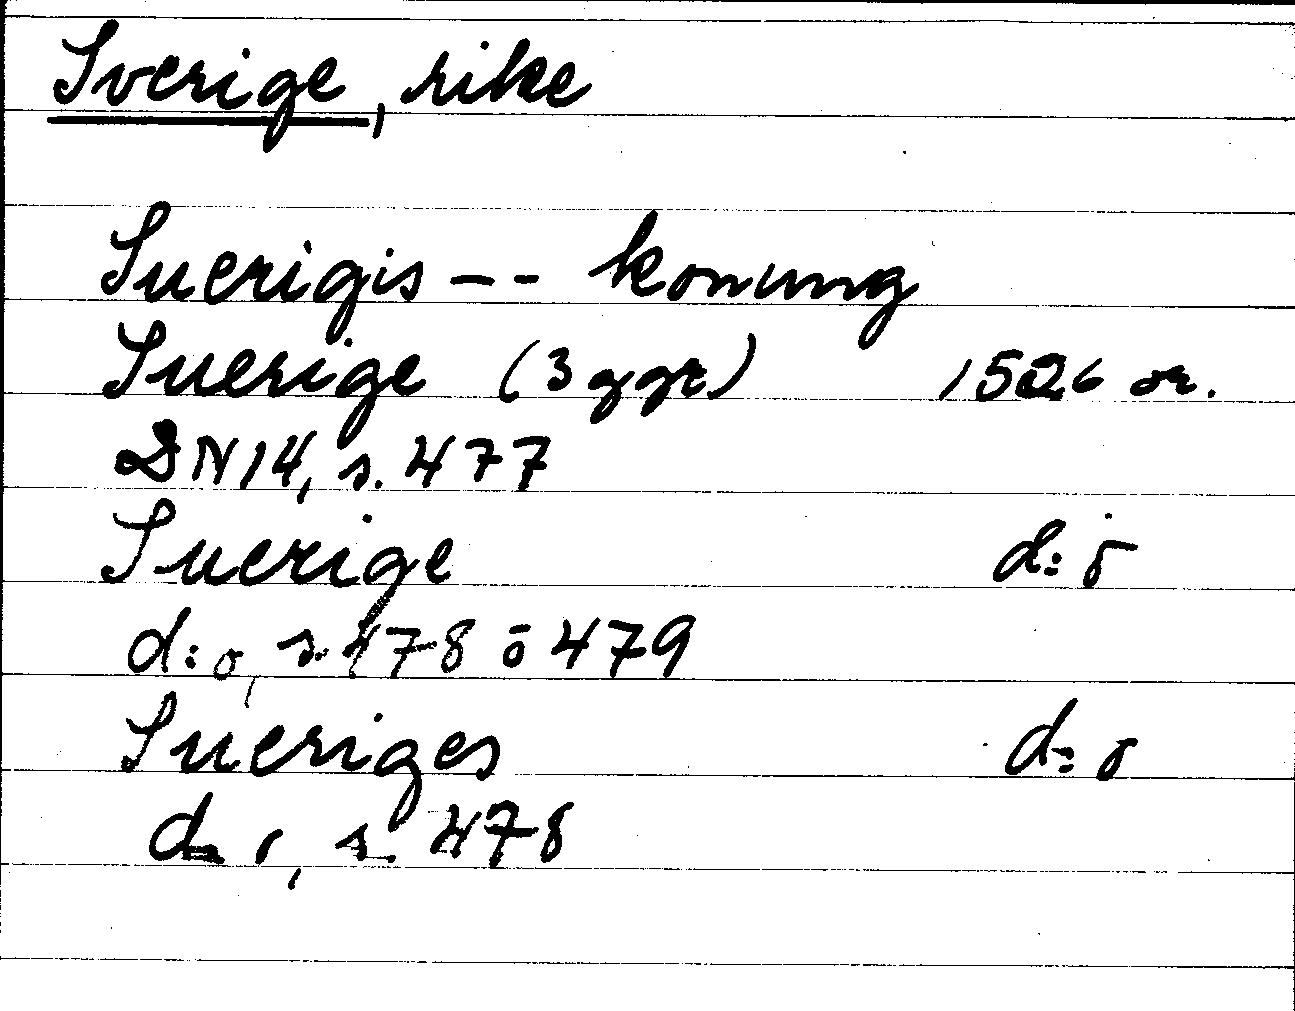 Sverige, rike
Suerigis -- konung
Suerige (3 ggr) 1526 or.
DN 14, s. 477
Suerige d:o
d:o, s. 478 o 479
Sueriges d:o
d:o, s. 478